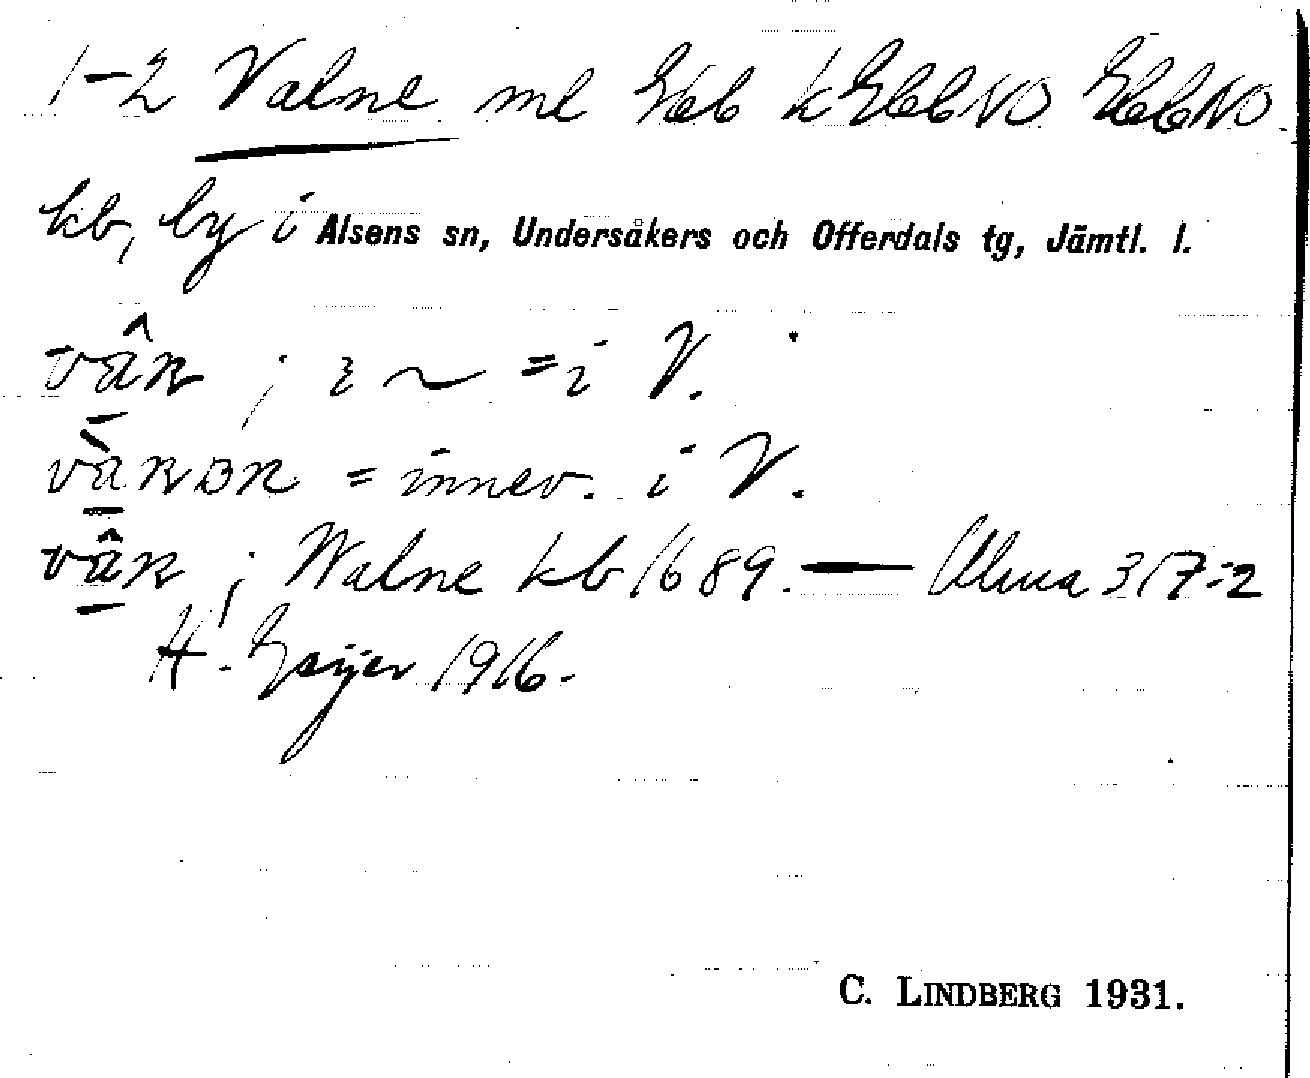 1-2 Valne ml
kb, by i Alsens sn, Undersåkers och Offerdals tg, Jämtl. l.
vân ; i ~ = i V.
= innev. i V.
vân ; Walne kb 1689. — 317:2
H. Geijer 1916.
C. LINDBERG 1931.